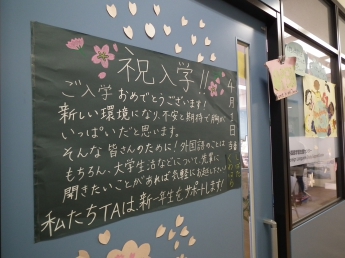 祝入学!!
ご入学おめでとうございます!
新しい環境になり不安と期待で胸が
いっぱいだと思います。
そんな皆さんのために!外国語のことは
もちろん、大学生活などについて、先輩に
聞きたいことがあれば気軽にお越しください
私たちTAは、新一年生をサポートします!
4月1日